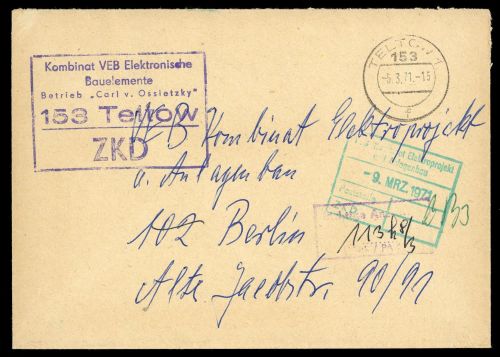 Kombinat VEB Elektronische
Bauelemente
Betrieb „Carl v. Ossietzky"
153 Teltow
ZKD
TELTOW 1
153
-5.3.71.-15
VEB Kombinat Elektroprojekt
u. Anlagenbau
102 Berlin
Alte Jacobstr. 90/91
Elektroprojekt
-9. MRZ. 1971